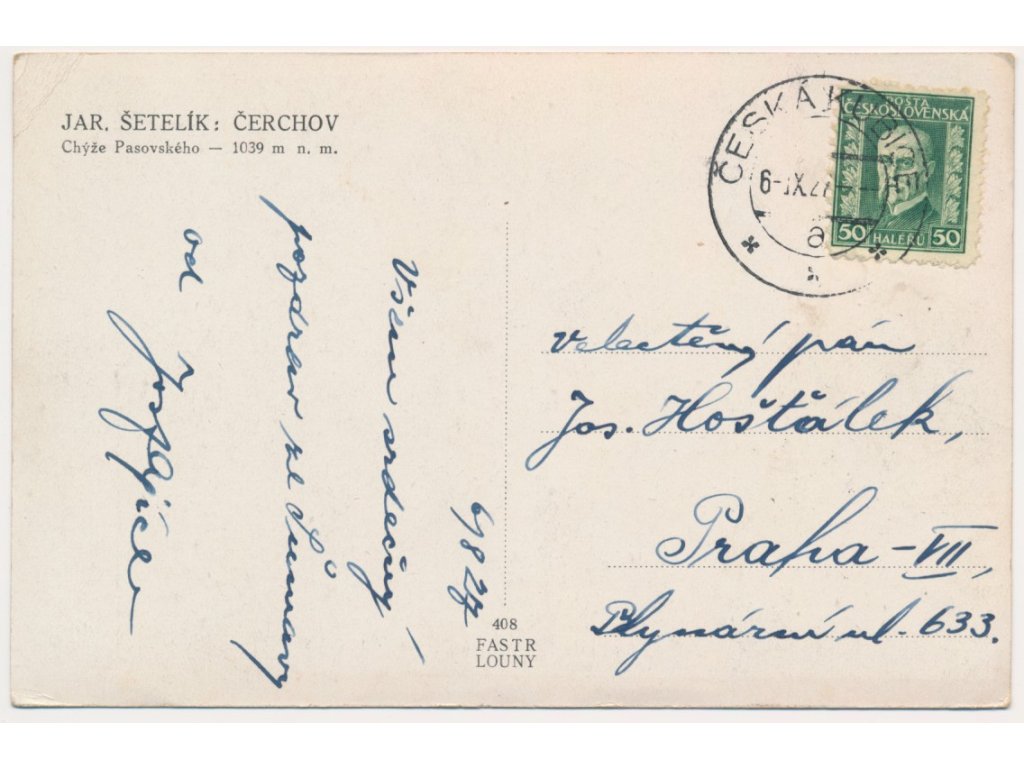 JAR. ŠETELÍK: ČERCHOV
Chýže Pasovského — 1039 m n. m.
6/8 27
Všem srdečný
pozdrav ze Šumavy
od
Josef
408
FASTR
LOUNY
ČESKÁ KUBICE
6-IX.27
a
POSTA
ČESKOSLOVENSKÁ
50 HALÉŘŮ 50
Velectěný pán
Jos. Hošťálek,
Praha-VII,
Plynární ul. 633.